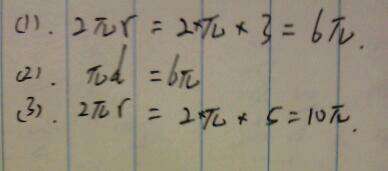 (1). 2πr = 2*π*3 = 6π.
(2). πd = 6π
(3). 2πr = 2*π*5=10π.